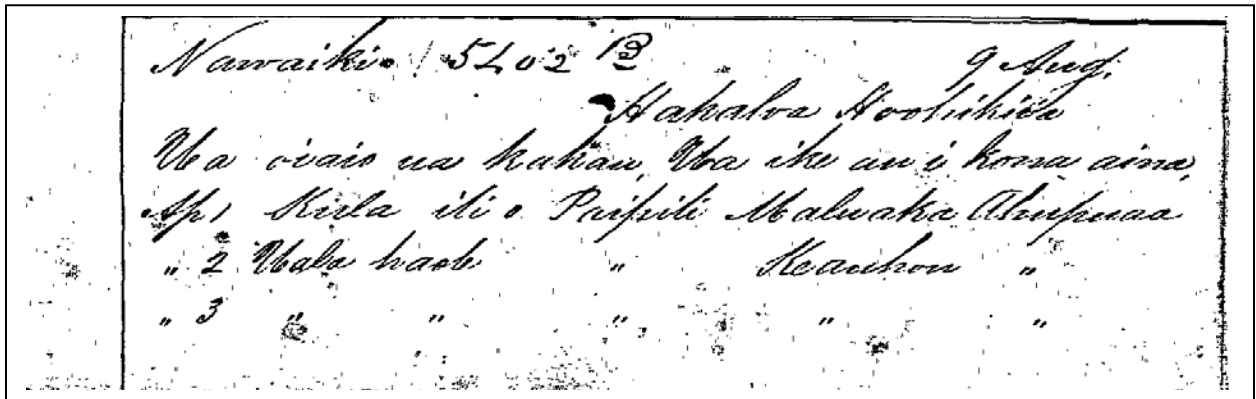 Nawaiki. 5402 B 9 Aug.
Hakaloa Hoohikiia
Ua oiaio na kakau, Ua ike au i kona aina,
Ap 1 Kula ili o Paipili Maluaka Ahupuaa
" 2 Uala haole " Keauhou "
" 3 " " " " "